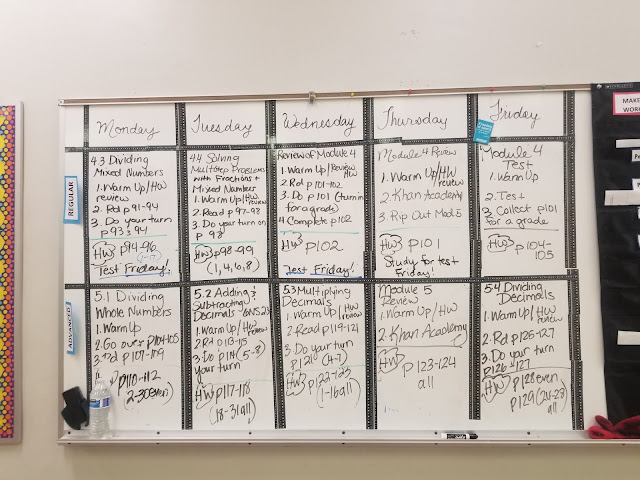 Monday
Tuesday
Wednesday
Thursday
Friday
MAKE
WORK
REGULAR
4.3 Dividing
Mixed Numbers
1. Warm Up/HW
review
2. Rd p91-94
3. Do your turn
p93 & 94
HW p94-96
Test Friday!
4.4 Solving
Multistep Problems
with Fractions +
Mixed Numbers
1. Warm Up/HW
review
2. Read p97-98
3. Do your turn on
p 98
HW p98-99
(1,4,6,8)
Review of Module 4
1. Warm Up/Review
HW
2. Rd p101-102
3. Do p101 (turn in
for a grade)
4 Complete p102
HW p102
Test Friday!
Module 4 Review
1. Warm Up/HW
review
2. Khan Academy
3. Rip Out Mod 5
HW p101
Study for test
Friday!
Module 4
Test
1. Warm Up
2. Test
3 Collect p101
for a grade
HW p104-
105
ADVANCED
5.1 Dividing
Whole Numbers
1. Warm Up
2. Go over p104-105
3. Rd p107-109
p110-112
2-30 even)
5.2 Adding &
Subtracting
Decimals
1. Warm Up/HW
Review
2. Rd 113-115
3. Do p114 (5-8)
your turn
HW p117-118
(18-31 all)
5.3 Multiplying
Decimals
1. Warm Up/HW
review
2 Read p119-121
3. Do your turn
p121 (4-7)
HW p122-123
(1-16 all)
Module 5
Review
1. Warm Up/HW
2. Khan Academy
HW
p123-124
all
5.4 Dividing
Decimals
1. Warm Up/HW
review
2. Rd p125-127
3. Do your turn
p126 & 127
HW p128 even
p129 (24-28)
all